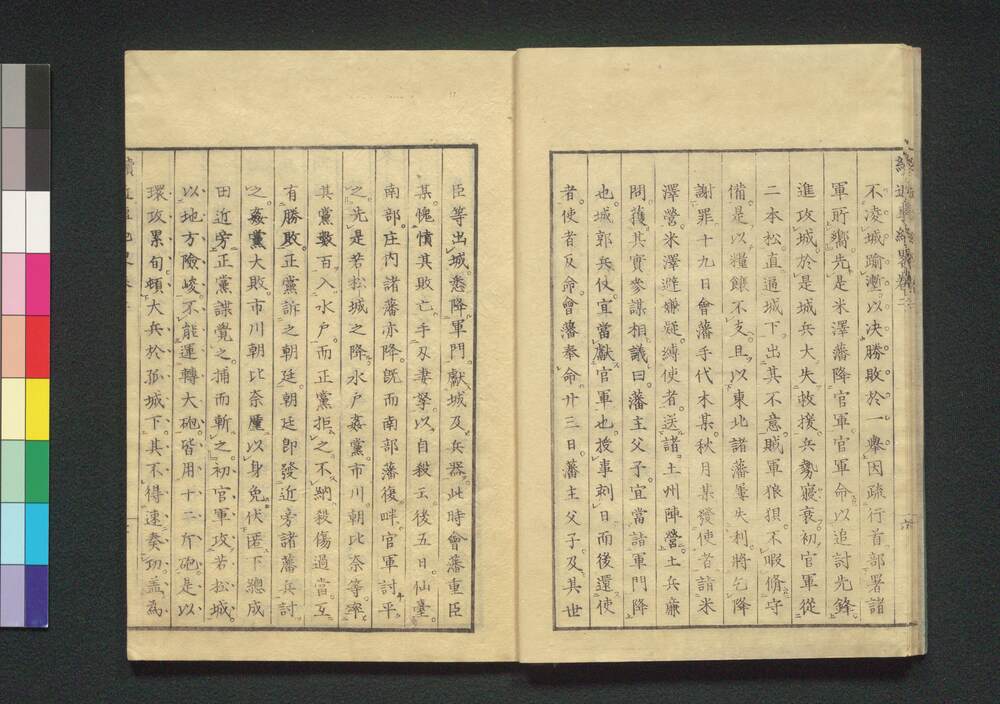 不凌城踰塹以決勝敗於一擧因疏行首部署諸
軍所嚮先是米澤藩降官軍官軍命以追討先鋒
進攻城於是城兵大失救援兵勢寢衰初官軍從
二本松直逼城下出其不意賊軍狼狽不暇脩守
備是以糧餽不支且以東北諸藩軍失利將乞降
謝罪十九日會藩手代木某秋月某發使者詣米
澤營米澤避嫌疑縛使者送諸土州陣營土兵廉
問獲其實參謀相議曰藩主父子宜當詣軍門降
也城郭兵仗宜當獻官軍也授事刻日而後還使
者使者反命會藩奉命廿三日藩主父子及其世
六
臣等出城悉降軍門獻城及兵器此時會藩重臣
某愧憤其敗亡手刃妻孥以自殺云後五日仙臺
南部庄內諸藩亦降既而南部藩復畔官軍討平
之先是若松城之降水戶姦黨市川朝比奈等率
其黨數百入水戶而正黨拒之不納殺傷過當互
有勝敗正黨訴之朝廷朝廷即發近旁諸藩兵討
之姦黨大敗市川朝比奈僅以身免伏匿下總成
田近旁正黨諜覺之捕而斬之初官軍攻若松城
以地方險峻不能運轉大砲皆用十二斤砲是以
環攻累旬頓大兵於孤城下其不得速奏功蓋為